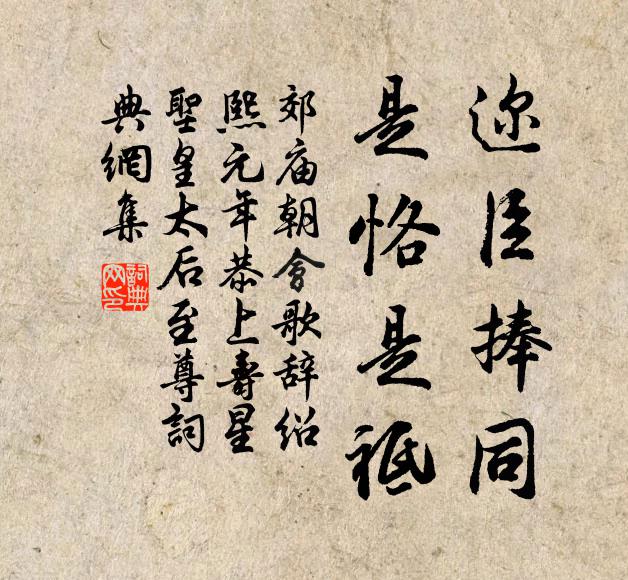 迩臣捧同
是恪是祗
郊庙朝会歌辞绍
熙元年恭上寿星
聖皇太后至尊詞
典網集
詞典网印